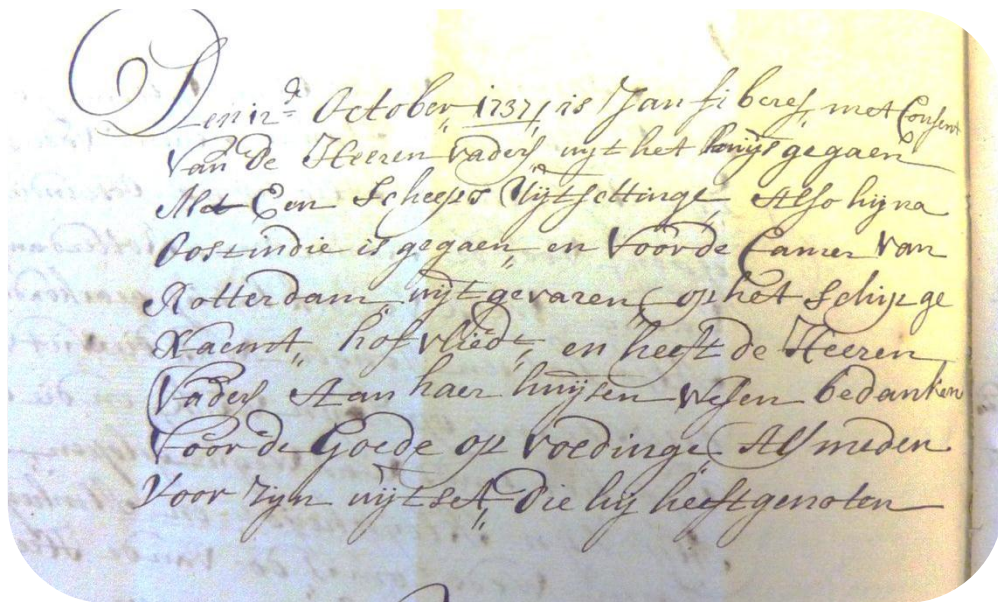 Den 12de October 1737 is Jan fiberes met Consent
van de Heeren vaders uyt het huijs gegaen
Met Een Scheeps Uijtsettinge Also hij na
Oostindie is gegaen en voor de Camer van
Rotterdam uijt gevaren op het Schip ge
Naemt hofvliedt en heeft de Heeren
Vaders Aan haer huijsen wesen bedanken
voor de Goede op voedinge Als meden
Voor zijn uijtset die hij heeft genoten